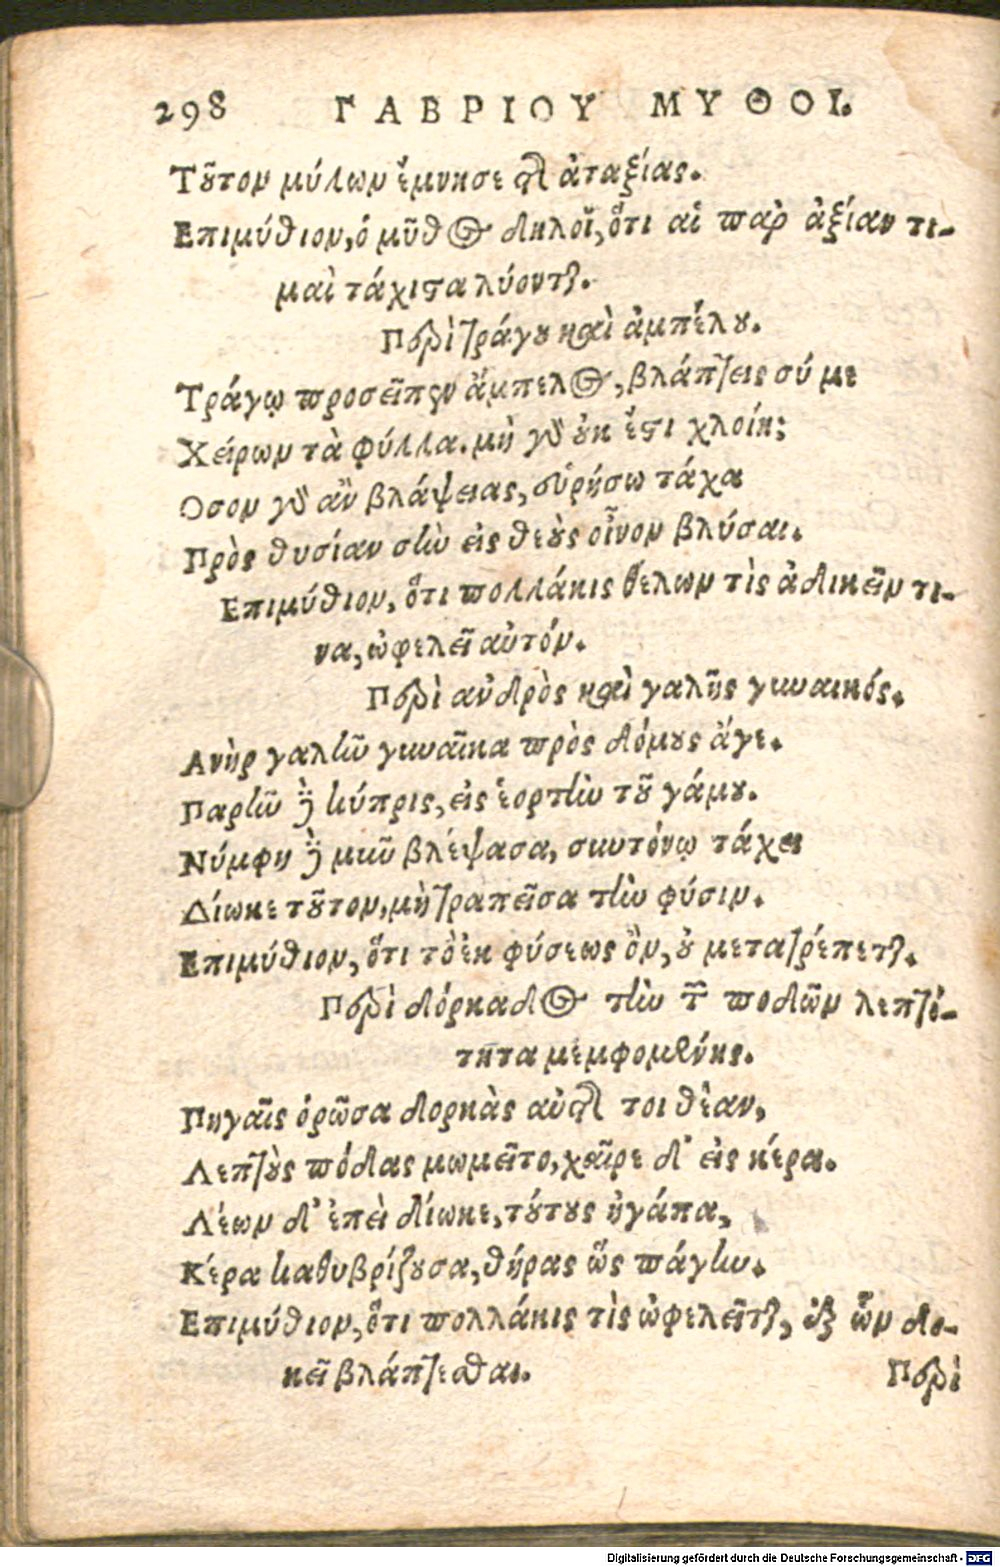 298 ΓΑΒΡΙΟΥ ΜΥΘΟΙ.
Τοῦτον μύλων ἔμνησε τῆς ἀταξίας.
Επιμύθιον, ὁ μῦθος δηλοῖ, ὅτι αἱ παρ ἀξίαν τι-
μαὶ τάχιστα λύονται.
Περὶ τράγου καὶ ἀμπέλου.
Τράγῳ προσεῖπεν ἄμπελος, βλάπτεις σύ με
Χείρων τὰ φύλλα. μὴ γὸ οὐκ ἔστι χλοίη;
Οσον γὸ ἂν βλάψειας, εὑρήσω τάχα
Πρὸς θυσίαν σὴν εἰς θεοὺς οἶνον βλύσαι.
Επιμύθιον, ὅτι πολλάκις θέλων τὶς ἀδικεῖν τι-
να, ὠφελεῖ αὐτόν.
Περὶ ανδρὸς καὶ γαλῆς γυναικός.
Ανὴρ γαλῆν γυναῖκα πρὸς δόμους ἄγε.
Παρῆν δὲ κύπρις, εἰς ἑορτὴν τοῦ γάμου.
Νύμφη δὲ μῦν βλέψασα, συντόνῳ τάχει
Δίωκε τοῦτον, μὴ τραπεῖσα τὴν φύσιν.
Επιμύθιον, ὅτι τὸ ἐκ φύσεως ὂν, οὐ μετατρέπεται.
Περὶ δόρκαδος τὴν τῶν ποδῶν λεπτό-
τητα μεμφομένης.
Πηγαῖς ὁρῶσα δορκὰς αὐτῆς τοι θέαν,
Λεπτοὺς πόδας μωμεῖτο, χαῖρε δ' εἰς κέρα.
Λέων δ' ἐπεὶ δίωκε, τούτους ἠγάπα,
Κέρα καθυβρίζουσα, θήρας ὥς πάγην.
Επιμύθιον, ὅτι πολλάκις τὶς ὠφελεῖται, ἐξ ὧν δο-
κεῖ βλάπτεσθαι. Περὶ
Digitalisierung gefördert durch die Deutsche Forschungsgemeinschaft - DFG